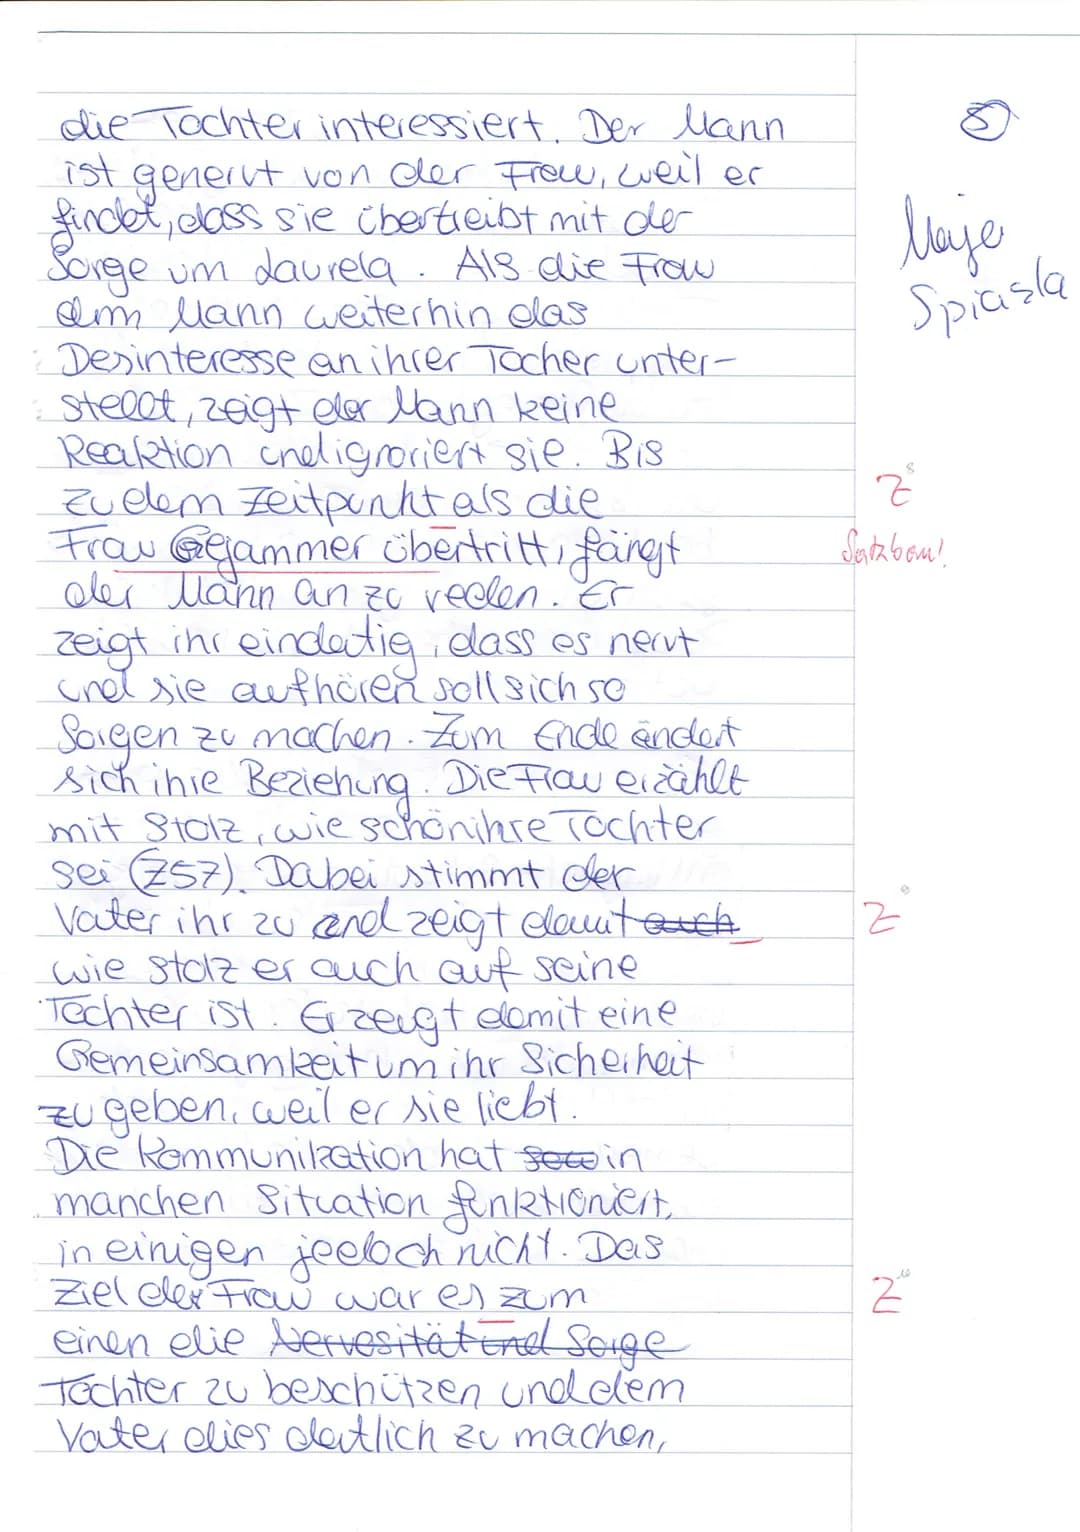 die Tochter interessiert. Der Mann
ist genervt von der Frau, weil er
findet, dass sie übertreibt mit der
Sorge um Laurela. Als die Frau
dem Mann weiterhin das
Desinteresse an ihrer Tocher unter-
stellt, zeigt der Mann keine
Reaktion und igroriert sie. Bis
zu dem Zeitpunkt als die
Frau Gejammer übertritt, fängt
der Mann an zu reden. Er
zeigt ihr eindeutig, dass es nervt
und sie aufhören soll sich so
Sorgen zu machen. Zum Ende ändert
sich ihre Beziehung. Die Frau erzählt
mit Stolz, wie schön ihre Tochter
sei (Z57). Dabei stimmt der
Vater ihr zu und zeigt damit auch
wie stolz er auch auf seine
Tochter ist. Er zeugt damit eine
Gemeinsamkeit um ihr Sicherheit
zu geben, weil er sie liebt.
Die Kommunikation hat in
manchen Situation funktioniert,
in einigen jedoch nicht. Das
Ziel der Frau war es zum
einen die Nervosität und Sorge
Tochter zu beschützen und dem
Vater dies deutlich zu machen,
5
Spiasla
Z
Satzbau!
Z
Z